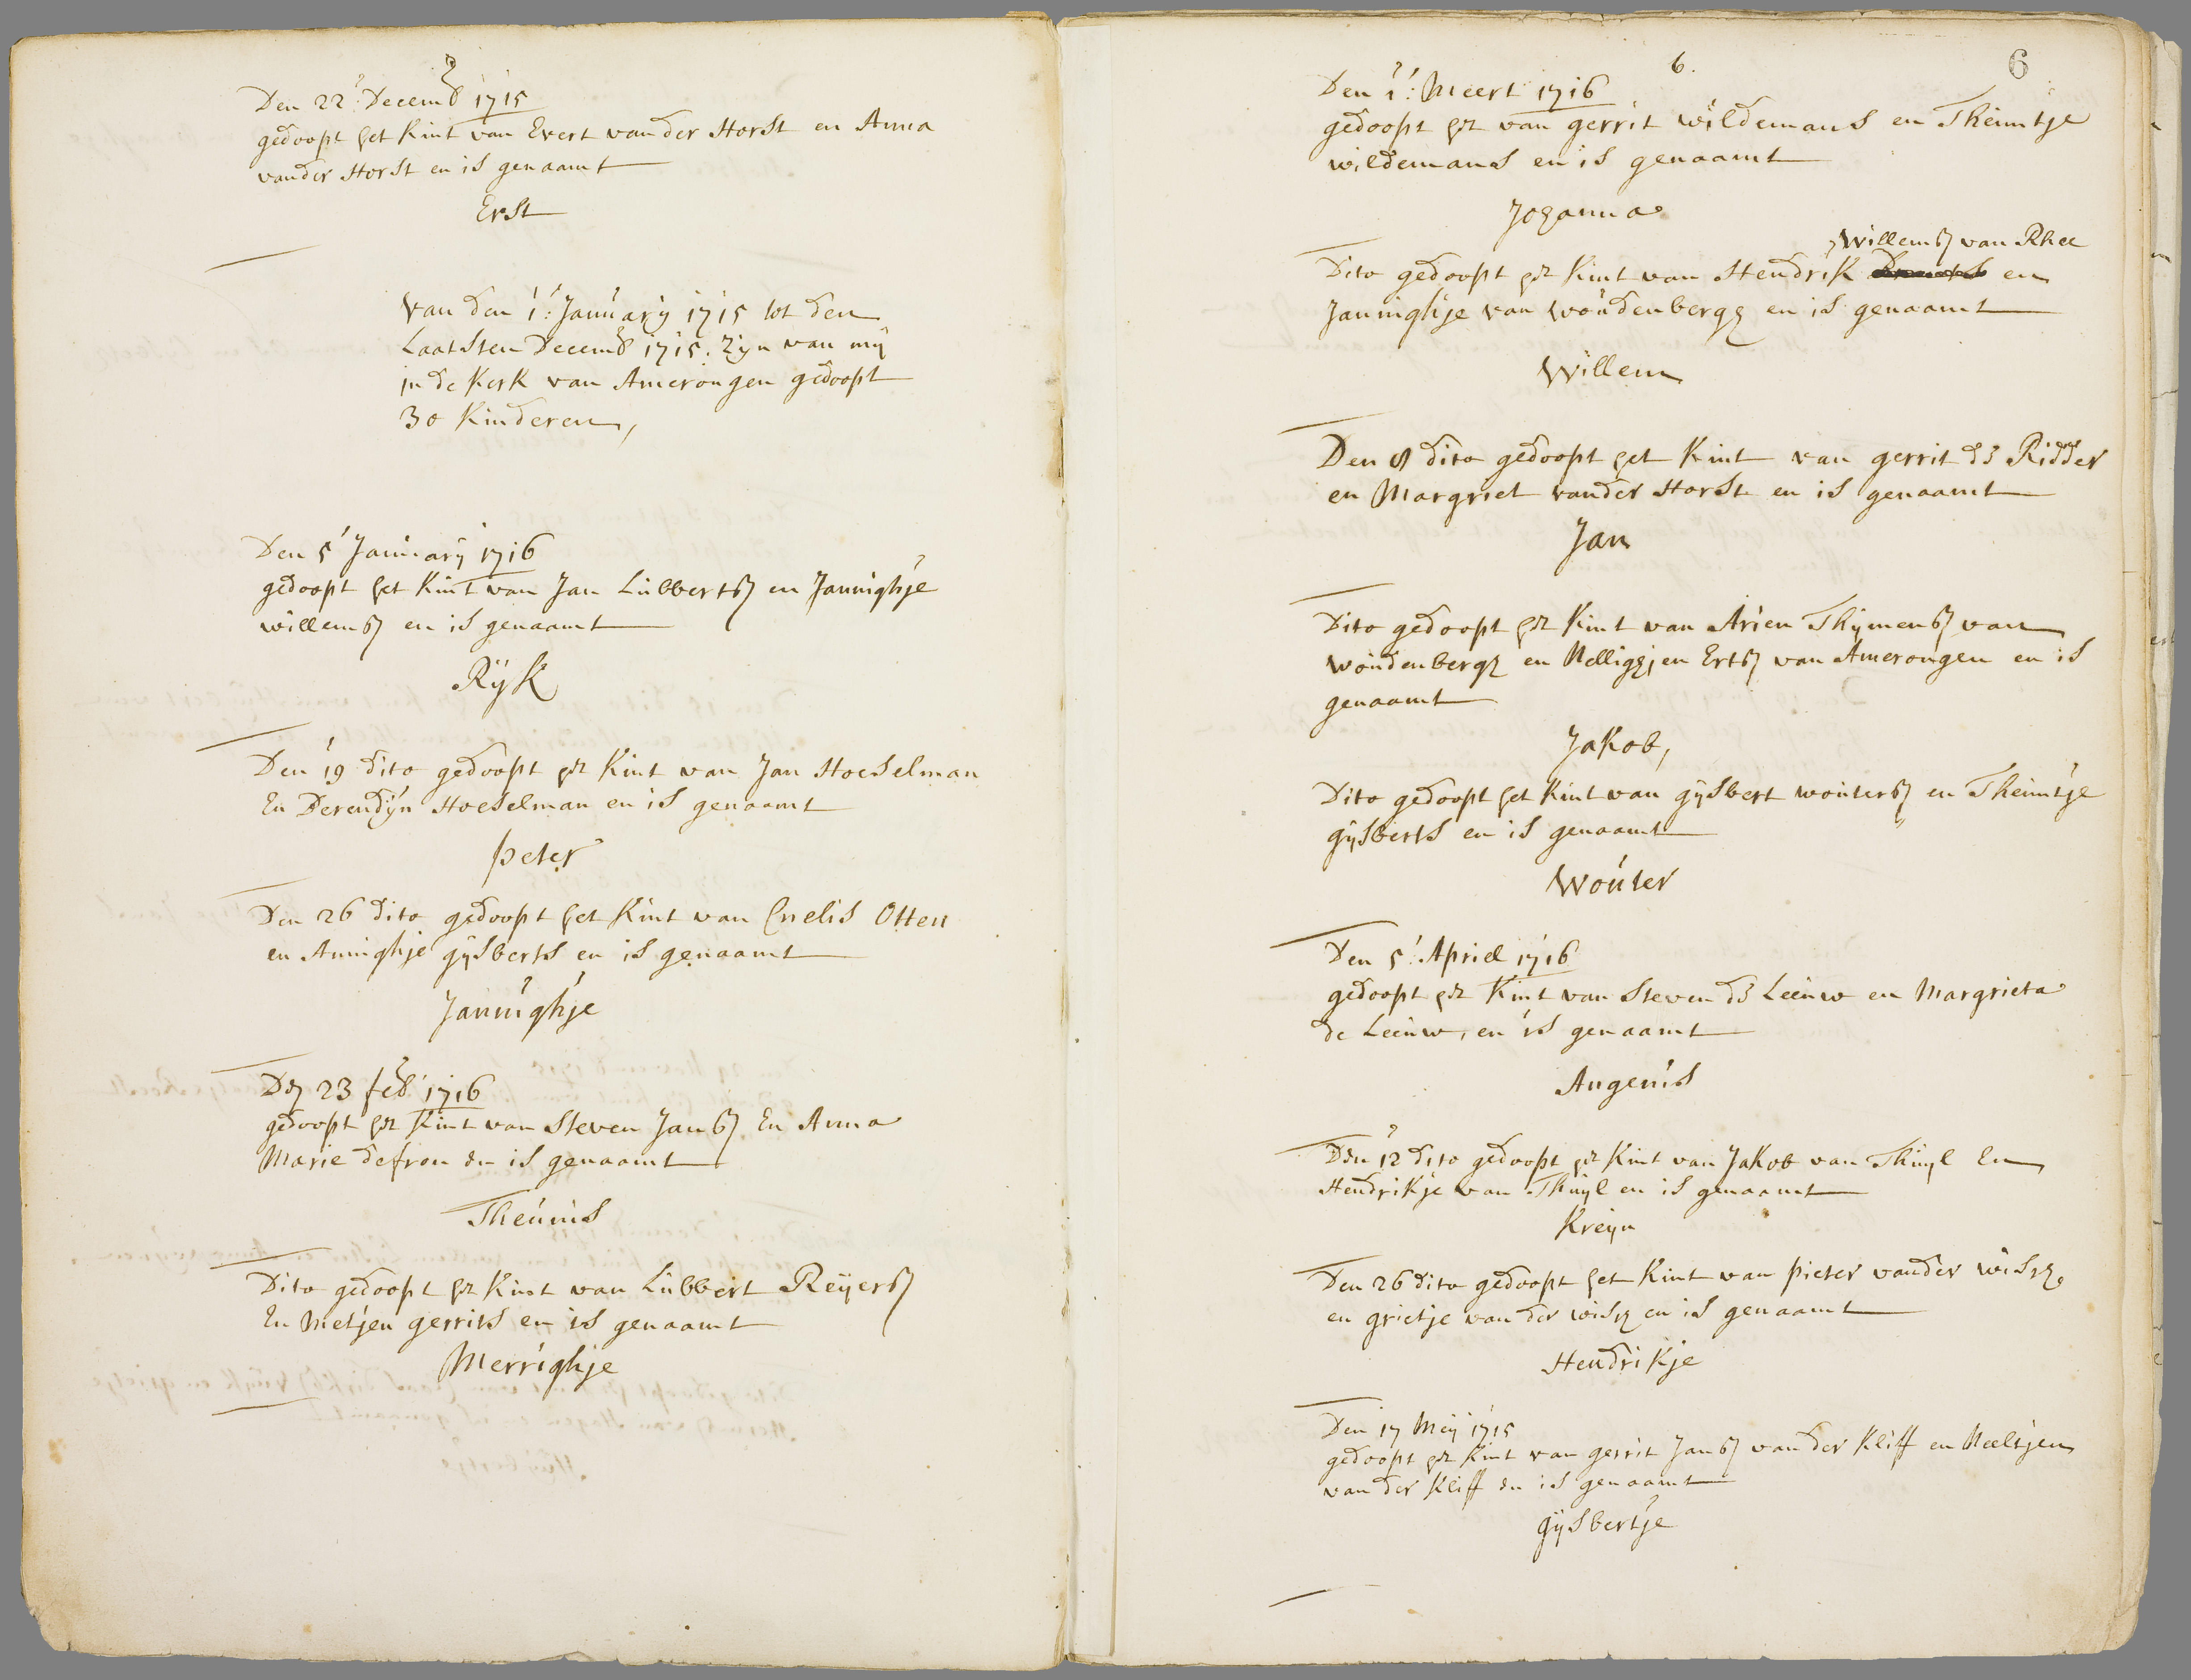 Den 22: Decemb 1715
gedoopt het Kint van Evert vander Horst en Anna
vander Horst en is genaamt
Erst
Van den 1: January 1715 tot den
Laatsten Decemb 1715. Zyn van my
in de Kerk van Amerongen gedoopt
30 Kinderen,
Den 5 January 1716
gedoopt het Kint van Jan Lubberts en Jannighje
willems en is genaamt
Ryk
Den 19 dito gedoopt het Kint van Jan Hoeselman
En Derendyn Hoeselman en is genaamt
peter
Den 26 dito gedoopt het Kint van Cnelis Otten
en Annighje gysberts en is genaamt
Jannighje
Den 23 feb 1716
gedoopt het Kint van Steven Jans En Anna
Marie defron en is genaamt
Theunis
Dito gedoopt het Kint van Lubbert Reyers
En Metjen gerrits en is genaamt
Merrighje
6. 6
Den 1: Meert 1716
gedoopt het van gerrit wildemans en Theuntje
wildemans en is genaamt
Johanna
Willems van Rhee
Dito gedoopt het Kint van Hendrik en
Jannighje van Woudenbergh en is genaamt
Willem
Den 8 dito gedoopt het Kint van gerrit de Ridder
en Margriet vander Horst en is genaamt
Jan
Dito gedoopt het Kint van Arien Thymens van
Woudenbergh en Nellighjen Erts van Amerongen en is
genaamt
Jakob,
Dito gedoopt het Kint van gysbert wouters en Theuntje
gysberts en is genaamt
Wouter
Den 5: Apriel 1716
gedoopt het Kint van Steven de Leeuw en Margrieta
de Leeuw, en is genaamt
Angenis
Den 12 dito gedoopt het Kint van Jakob van Thuyl En
Hendrikje van Thuyl en is genaamt
Kreyn
Den 26 dito gedoopt het Kint van pieter vander wisch
en grietje van der wisch en is genaamt
Hendrikje
Den 17 Mey 1715
gedoopt het Kint van gerrit Jans van der Kliff en Neeltjen
van der Kliff en is genaamt
gysbertje